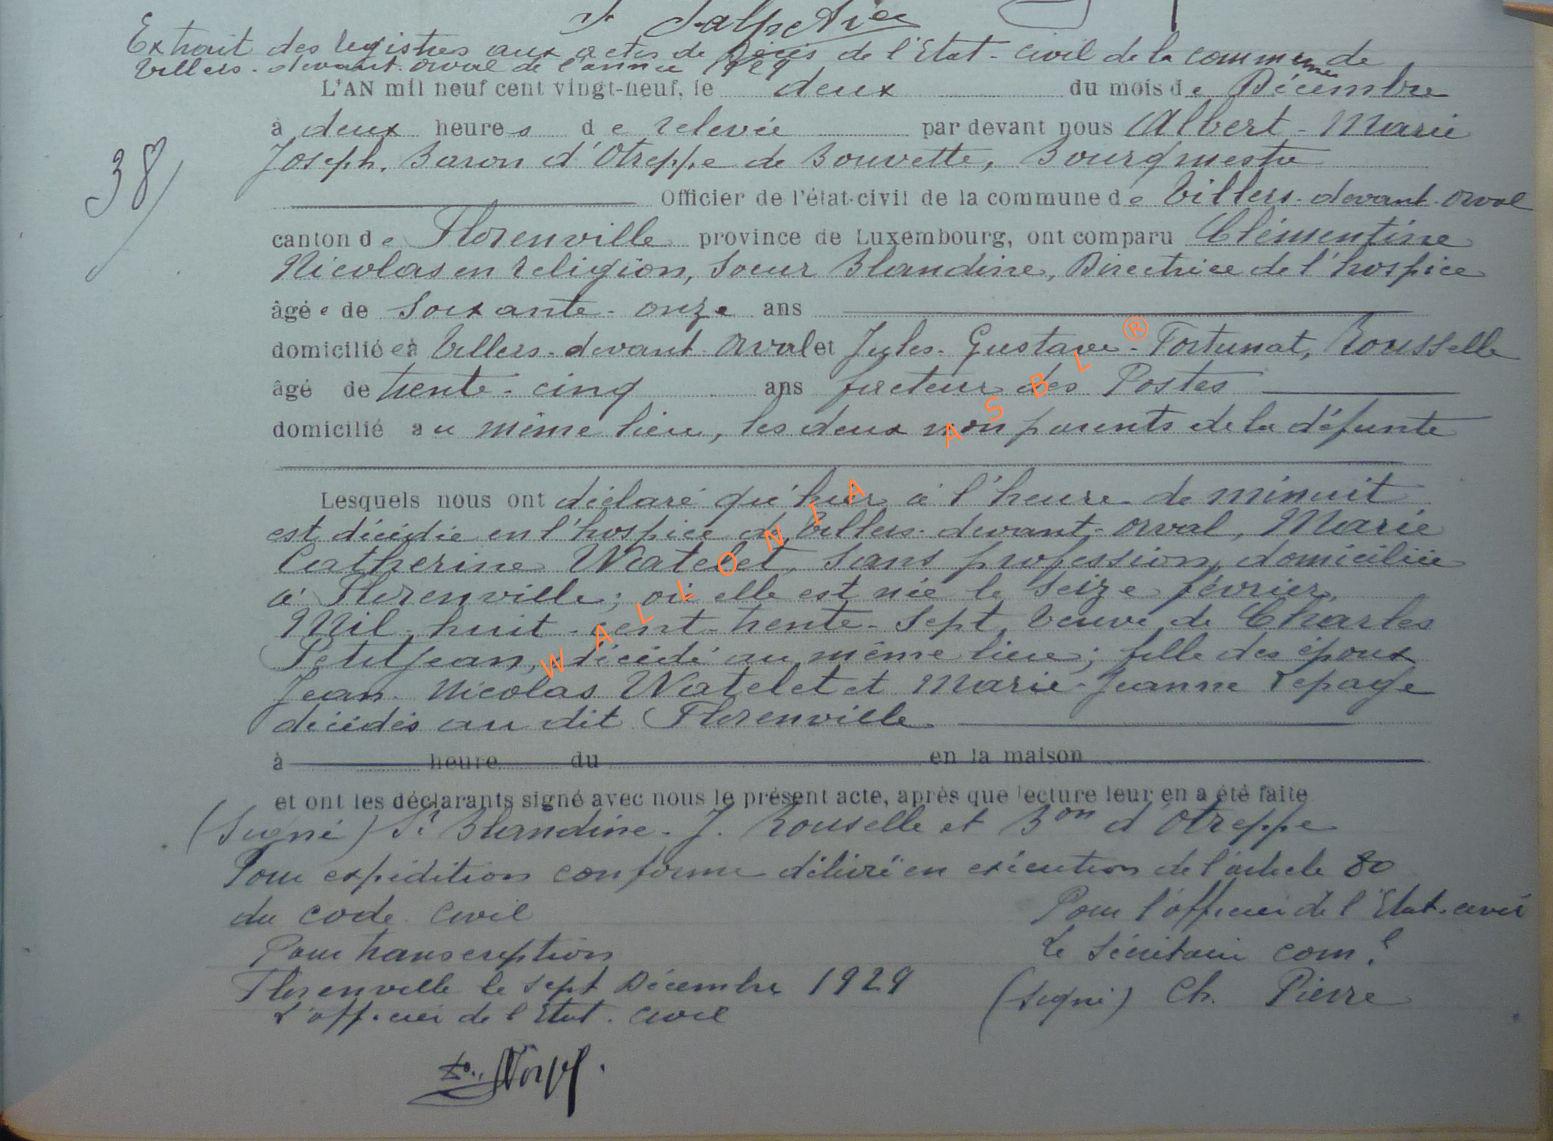 Extrait des registres aux actes de Décès de l'Etat-civil de la commune de
Villers-devant-orval de l'année 1929
L'AN mil neuf cent vingt-neuf, le deux du mois de Décembre
à deux heures de relevée par devant nous Albert-Marie
38/
Joseph, Baron d'Otreppe de Bouvette, Bourgmestre
Officier de l'état-civil de la commune de Villers-devant-orval
canton de Florenville province de Luxembourg, ont comparu Clémentine
Nicolas en religion, Soeur Blandine, Directrice de l'hospice
âgée de Soixante-onze ans
domiciliée à Villers-devant Orval et Jules-Gustave-Fortunat, Rousselle
âgé de trente-cinq ans facteur des Postes
domicilié au même lieu, les deux non parents de la défunte
Lesquels nous ont déclaré qu'hier à l'heure de minuit
est décédée en l'hospice de Villers-devant-orval, Marie
Catherine Watelet, sans profession, domiciliée
à Florenville; où elle est née le Seize février,
Mil-huit-cent-trente-Sept, Veuve de Charles
Petitjean, décédé au même lieu; fille des époux
Jean-Nicolas Watelet et Marie-Jeanne Lepage
décédés au dit Florenville
à heure du en la maison
et ont les déclarants signé avec nous le présent acte, après que lecture leur en a été faite
(Signé) Sr Blandine - J. Rousselle et Bon d'Otreppe
Pour expédition conforme délivrée en exécution de l'article 80
du code civil
Pour l'officier de l'Etat-civil
Pour transcription
Le Secrétaire com.l
Florenville le sept Décembre 1929
(signé) Ch. Pierre
L'officier de l'Etat-civil
WALLONIA ASBL ®